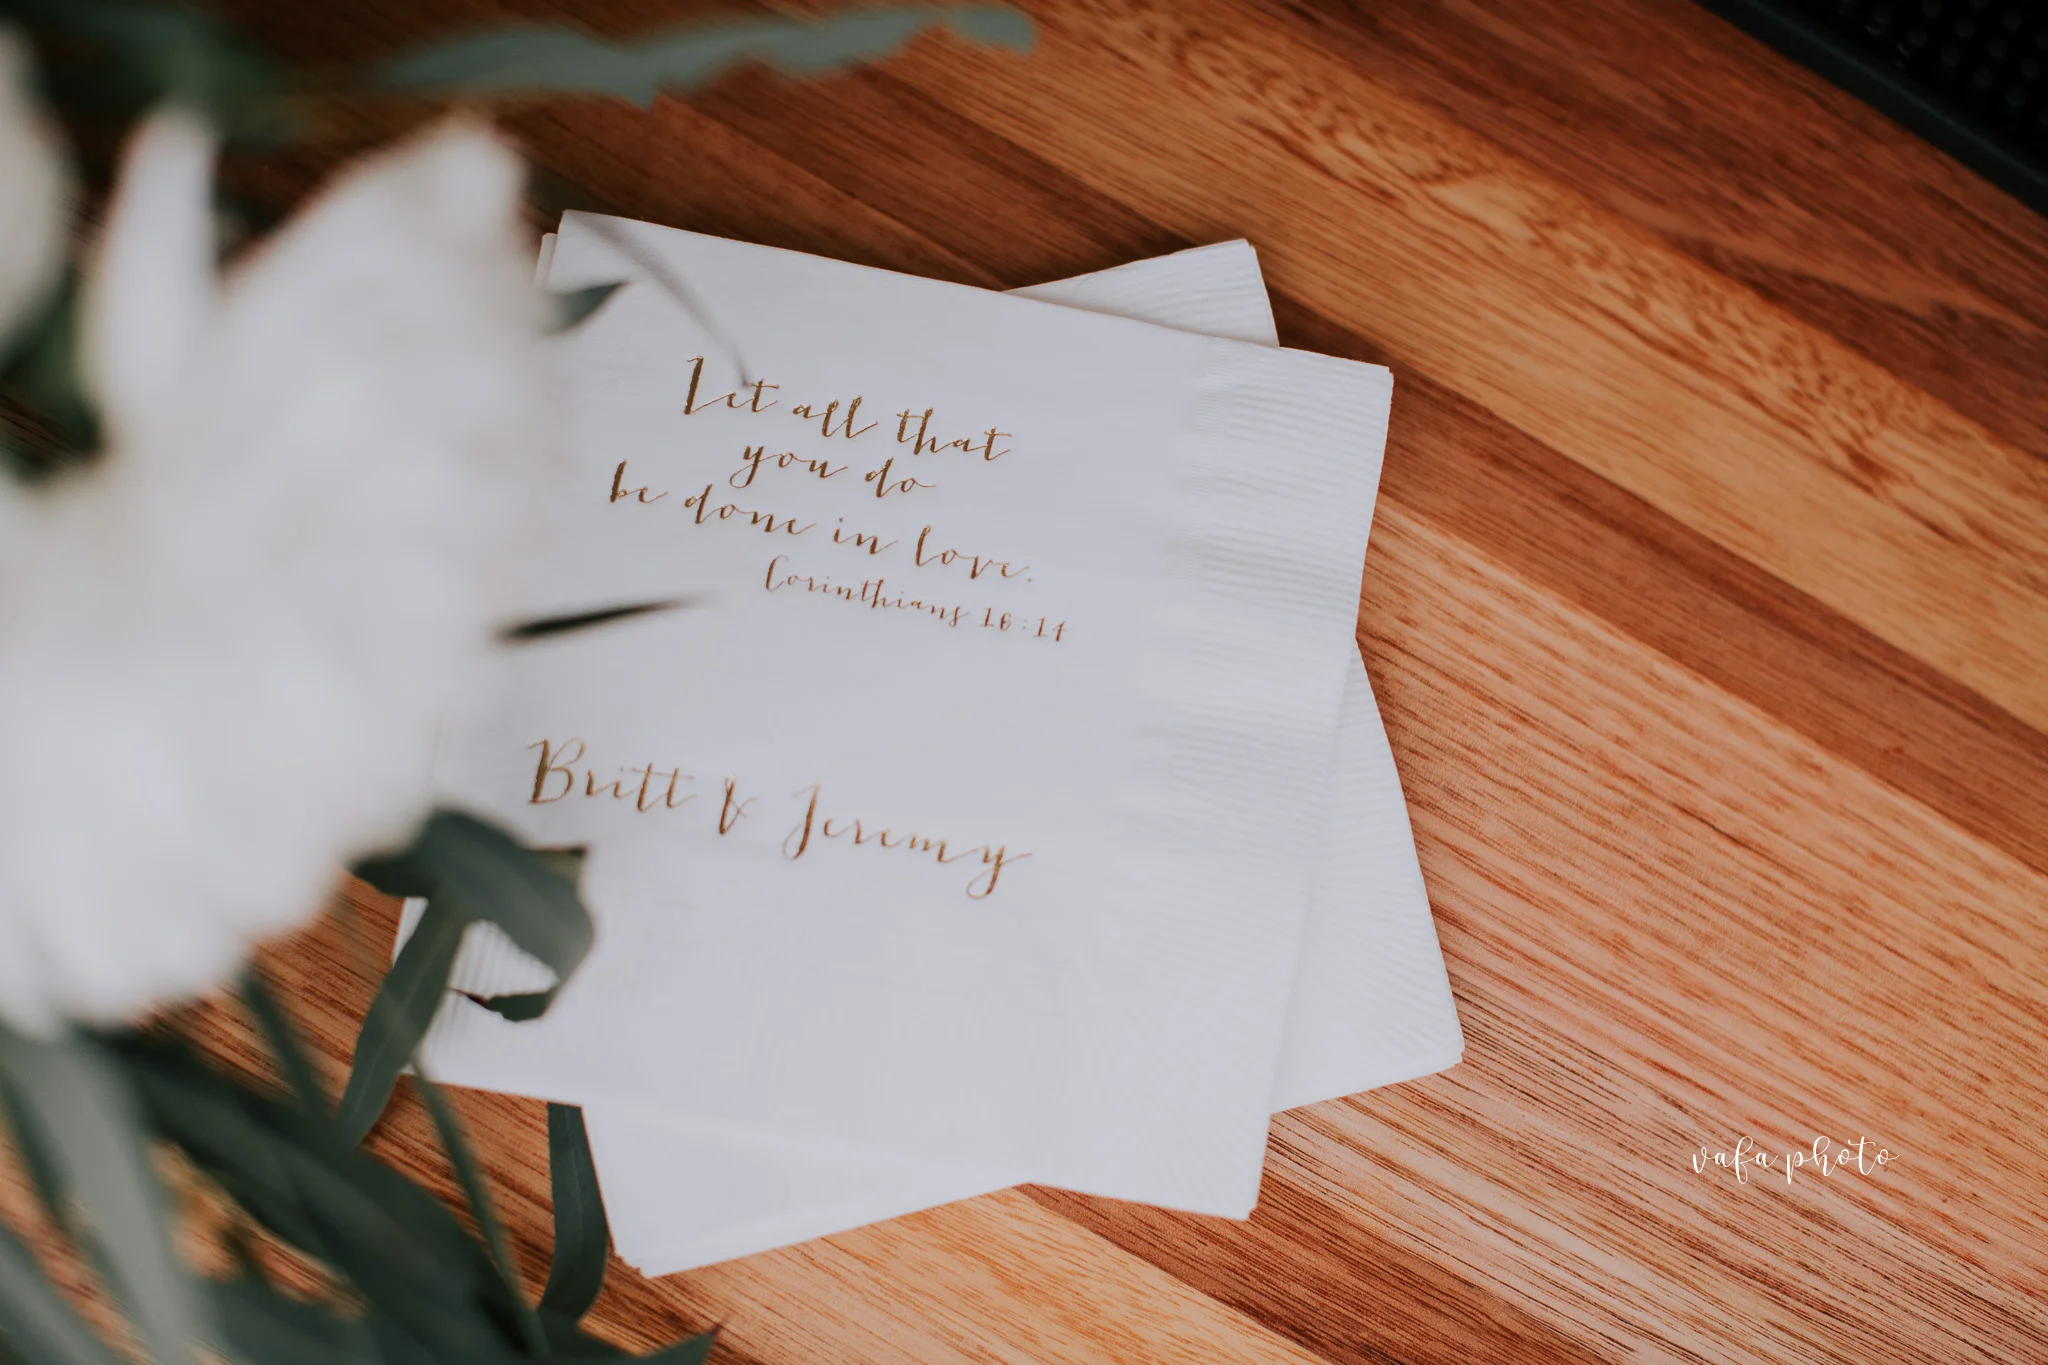 Let all that
you do
be done in love.
Corinthians 16:14
Britt & Jeremy
vafa photo